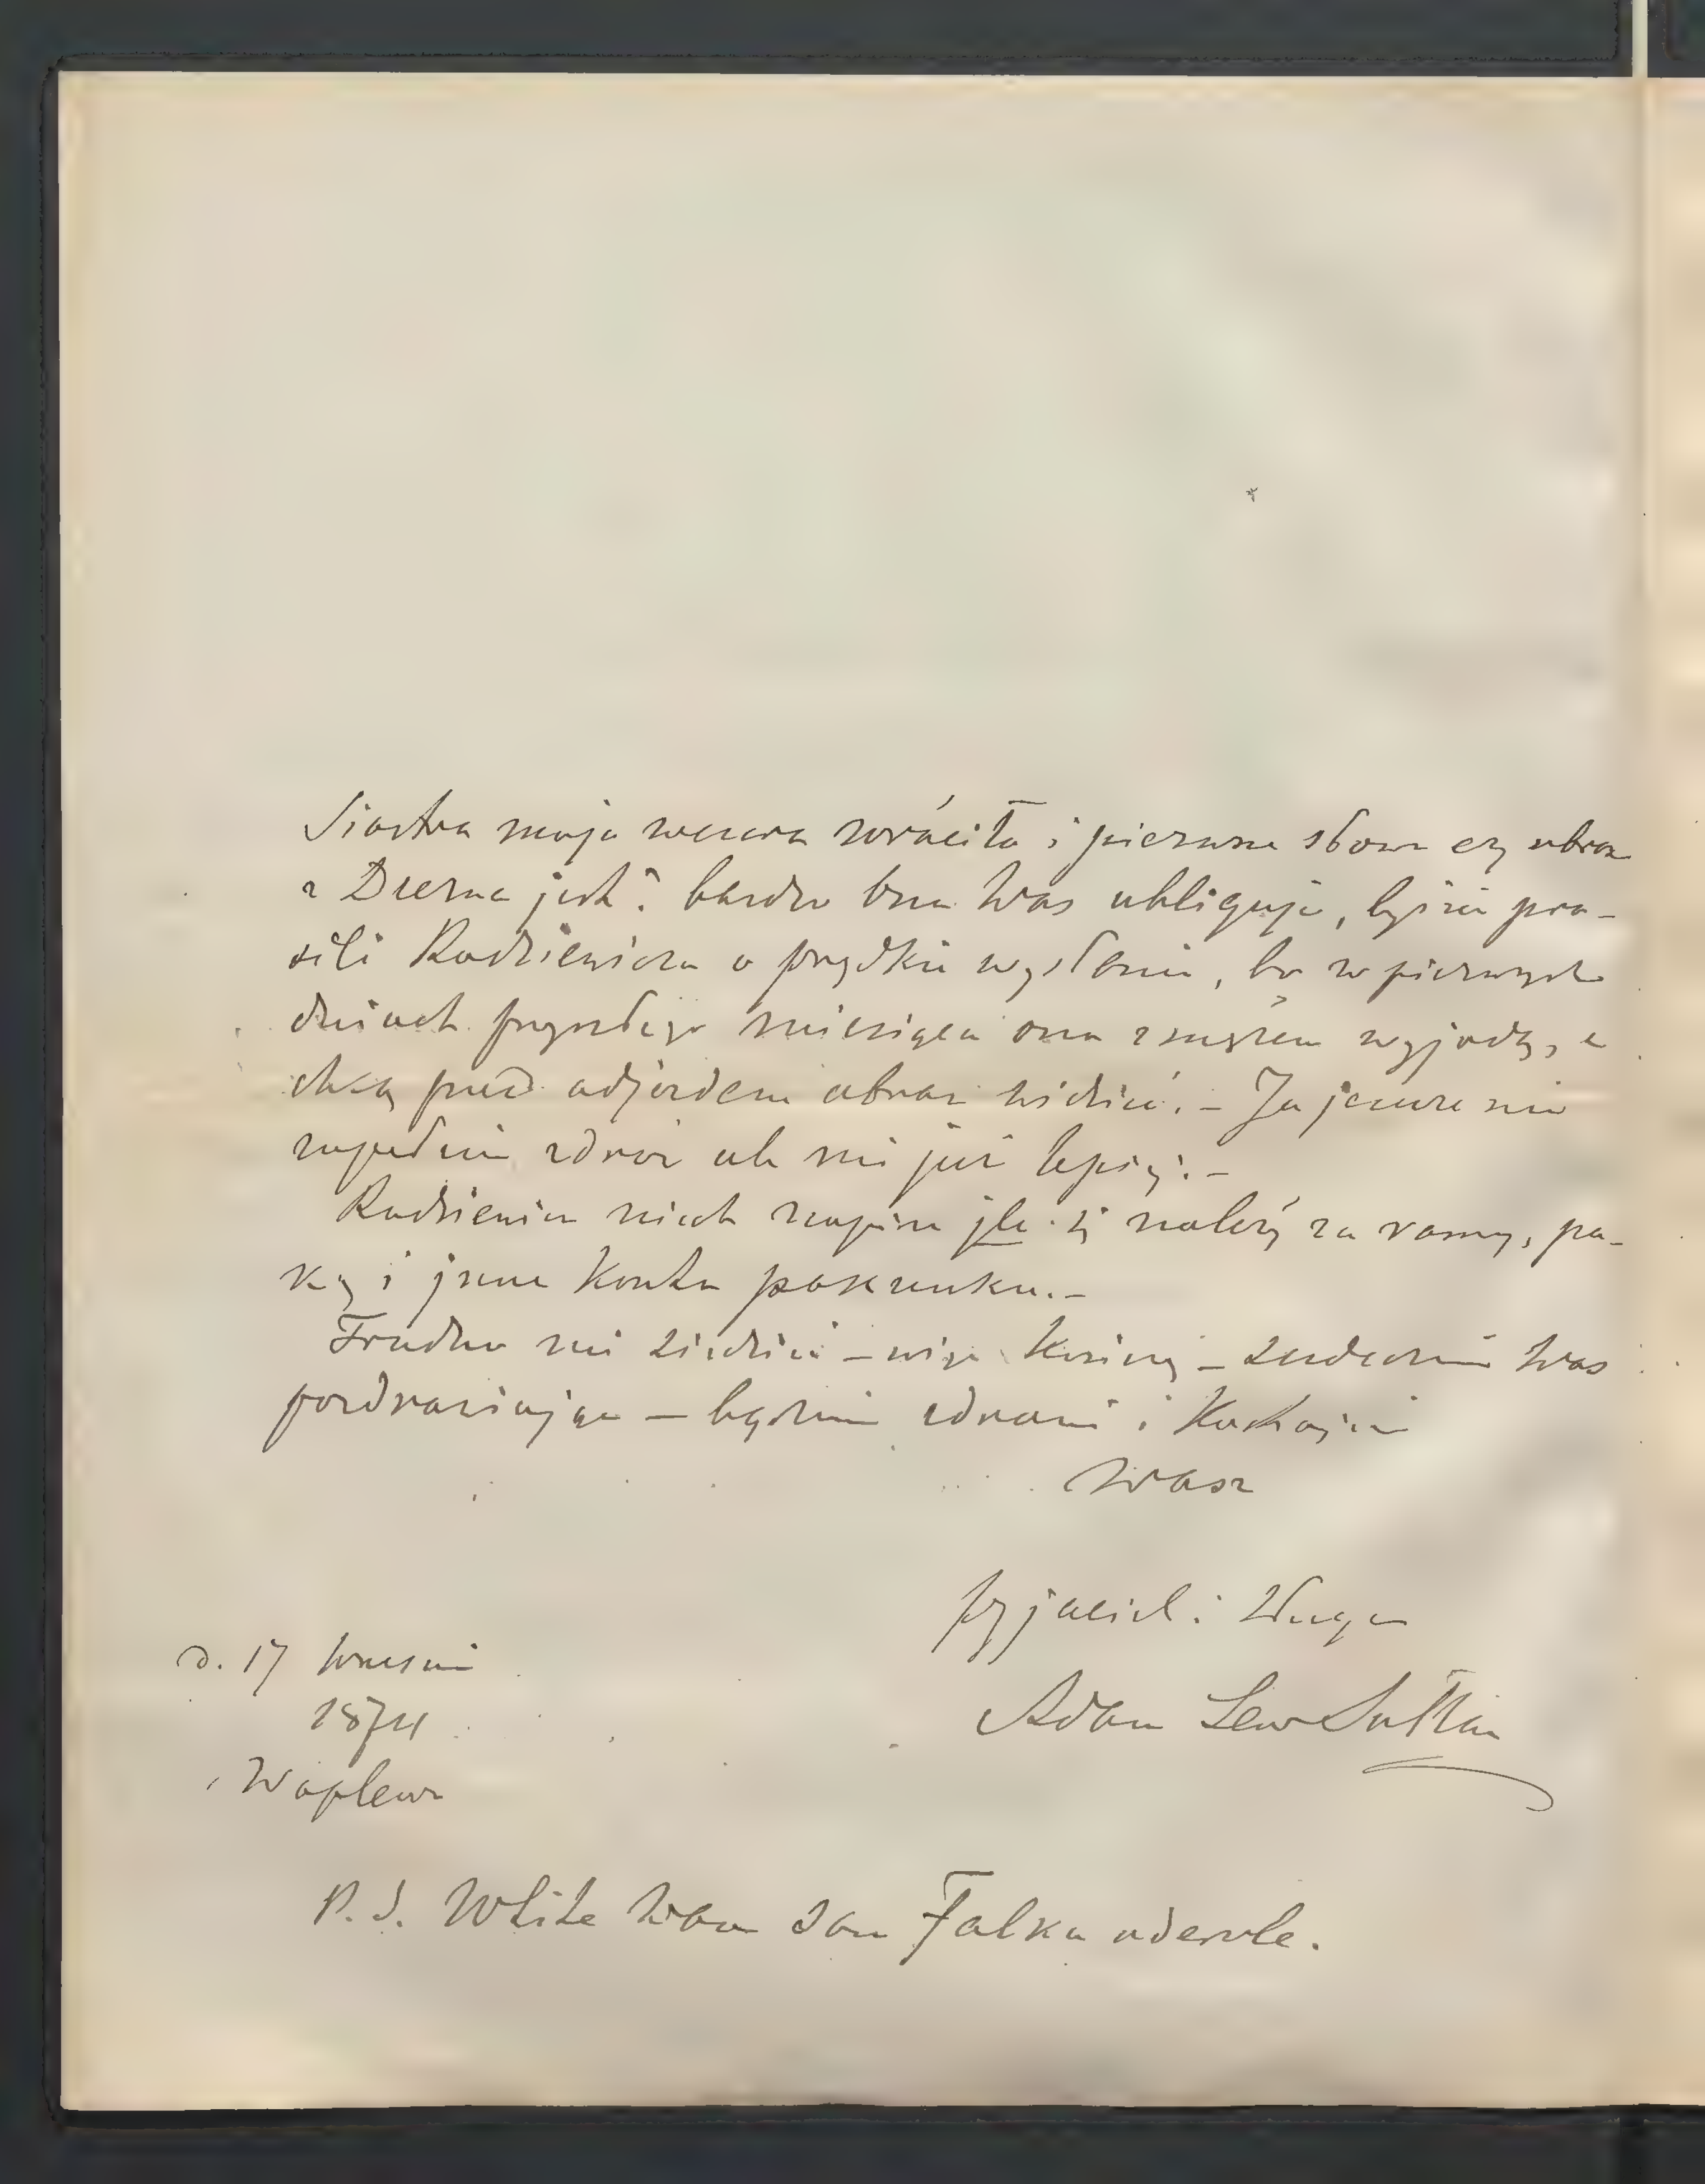 Siostra moja wczora wróciła i pierwsze słowo czy obraz
z Drezna jest? bardzo ona Was obliguje, byście pro-
sili Radziewicza o prędkie wysłanie, bo w pierwszych
dniach przyszłego miesiąca ona z mężem wyjadą, a
chcą przed odjazdem obraz widzieć. – Ja jeszcze nie
zupełnie zdrów ale mi już lepiej. –
Radziewicz niech napisze jle się należy za ramy, pa-
kę i jnne koszta
Trudno mi siedzieć – więc kończę – serdecznie Was
pozdrawiając – bądźcie zdrowi i kochajcie
Wasz
przyjaciel i sługa
d. 17 Wrześni
1874
Adam Lew Sołtan
Waplewo
P. S. White Wam dom Falka